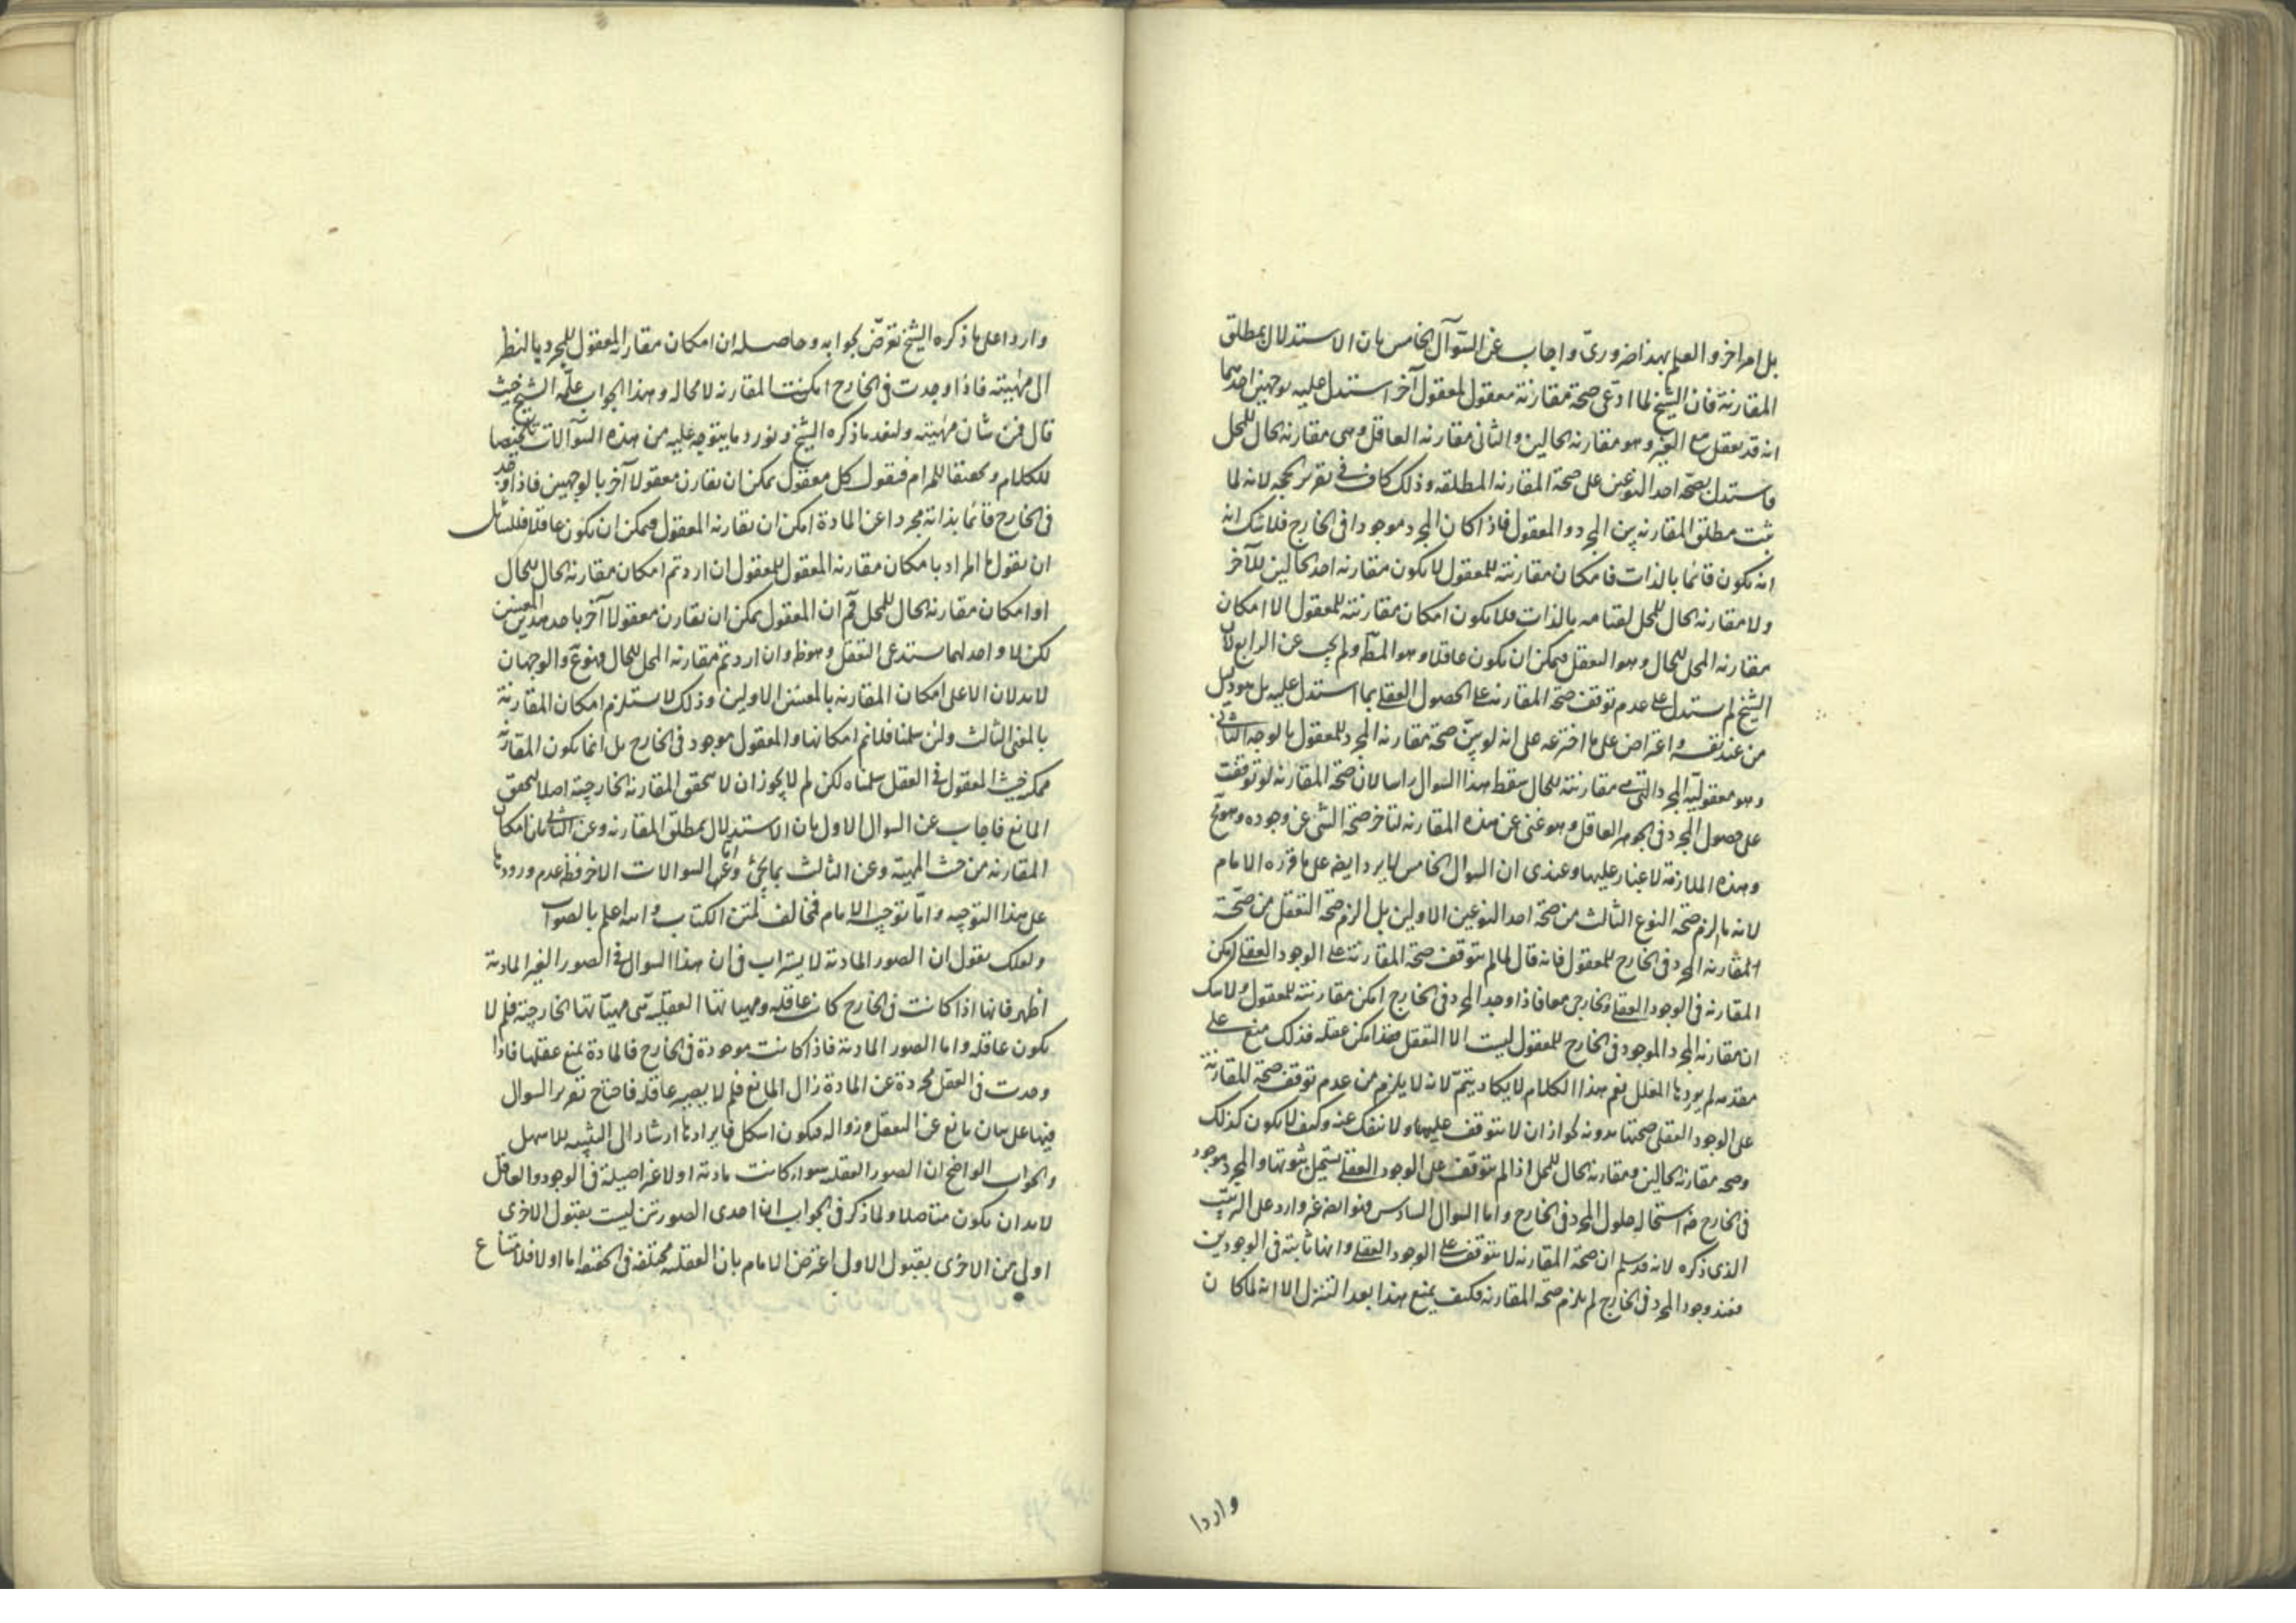 بل امر اخر و العلم بهذا ضرورى و اجاب عن السؤال الخامس بان الاستدلال بمطلق
المقارنة فان الشيخ لما ادعى صحة مقارنة معقول لمعقول آخر استدل عليه بوجهين احدهما
انه قد يعقل مع الغير و هو مقارنة الحالين و الثانى مقارنة العاقل و هى مقارنة الحال للمحل
فاستدل بصحة احد النوعين على صحة المقارنة المطلقه و ذلك كاف فى تقرير الحجه لانه لما
ثبت مطلق المقارنه بين المجرد و المعقول فاذا كان المجرد موجودا فى الخارج فلا شك انه
انه يكون قائما بالذات فامكان مقارنته للمعقول لا يكون مقارنه احد الحالين للآخر
و لا مقارنه الحال للمحل لقيامه بالذات فلا يكون امكان مقارنته للمعقول الا امكان
مقارنه المحل للحال و هو التعقل فيمكن ان يكون عاقلا و هو المط و لم يجب عن الرابع لان
الشيخ لم يستدل على عدم توقف صحة المقارنه على الحصول العقلى بما استدل عليه بل هو دليل
من عند نفسه و اعتراض على ما اخترعه على انه لو بين صحة مقارنه المجرد للمعقول بالوجه الثانى
و هو معقولية المجرد التى هى مقارنته للحال سقط هذا السوال راسا لان صحة المقارنه لو توقفت
على حصول المجرد فى الجوهر العاقل و هو غنى عن هذه المقارنه لتاخر صحة الشى عن وجوده و هو مح
و هذه الملازمة لا غبار عليها و عندى ان السوال الخامس لا يرد ايضا على ما قرره الامام
لانه ما الزم صحة النوع الثالث من صحة احد النوعين الاولين بل الزم صحة التعقل من صحة
المقارنه المجرد فى الخارج للمعقول فانه قال لما لم يتوقف صحة المقارنة على الوجود العقلى لكن
المقارنه فى الوجود العقلى و الخارجى معا فاذا وجد المجرد فى الخارج امكن مقارنته للمعقول و لا شك
ان مقارنه المجرد الموجود فى الخارج للمعقول ليست الا التعقل فقد امكن عقله فذلك منع على
مقدمه لم يوردها المعلل نعم هذا الكلام لا يكاد يتم لانه لا يلزم من عدم توقف صحة المقارنة
على الوجود العقلى صحتها بدونه لجواز ان لا يتوقف عليها و لا تنفك عنه و كيف لا يكون كذلك
و صحه مقارنه الحالين و مقارنه الحال للمحل اذا لم يتوقف على الوجود العقلى يستحيل ثبوتها و المجرد موجود
فى الخارج استحاله حلول المجرد فى الخارج و اما السوال السادس فهو ايضا غير وارد على الترتيب
الذى ذكره لانه قد سلم ان صحة المقارنه لا يتوقف على الوجود العقلى و انها ثابته فى الوجودين
فعند وجود المجرد فى الخارج لم يلزم صحه المقارنه فكيف يمنع هذا بعد التنزل الا انه لما كان
واردا
واردا على ما ذكره الشيخ تعرض لجوابه و حاصله ان امكان مقارنه المعقول للمجرد بالنظر
الى مهيته فاذا وجدت فى الخارج امكنت المقارنه لا محاله و هذا الجواب علمه الشيخ حيث
قال فمن شان مهيته و لنعد ما ذكره الشيخ و نورد ما يتوجه عليه من هذه السؤالات تلخيصا
للكلام و تحقيقا للمرام فنقول كل معقول يمكن ان يقارن معقولا آخر بالوجهين فاذا وجد
فى الخارج قائما بذاته مجردا عن المادة امكن ان يقارنه المعقول فيمكن ان يكون عاقلا فللسائل
ان يقول ما المراد بامكان مقارنه المعقول للمعقول ان اردتم امكان مقارنه الحال للحال
او امكان مقارنه الحال للمحل فم ان المعقول يمكن ان يقارن معقولا آخر باحد هذين المعنيين
لكن لا واحد لهما يستدعى التعقل و هو ظ و ان اردتم مقارنه المحل للحال فهو مم و الوجهان
لا يدلان الا على امكان المقارنه بالمعنيين الاولين و ذلك لا يستلزم امكان المقارنة
بالمعنى الثالث و لئن سلمنا فلا نم امكانها و المعقول موجود فى الخارج بل انما يكون المقارنة
ممكن حيث المعقول فى العقل سلمناه لكن لم لا يجوز ان لا يتحقق المقارنه الخارجية اصلا لتحقق
المانع فاجاب عن السوال الاول بان الاستدلال بمطلق المقارنه و عن الثانى بان امكان
المقارنه من حيث المهية و عن الثالث بما يجئ و اما عن السوالات الاخر فظ عدم ورودها
على هذا التوجيه و اما توجيه الامام فمخالف لمتن الكتاب و الله اعلم بالصواب
و لعلك تقول ان الصور المادية لا يستراب فى ان هذا السوال فى الصور الغير المادية
اظهر فانها اذا كانت فى الخارج كانت عاقله و مهياتها العقلية هى مهياتها الخارجية فلم لا
يكون عاقله و اما الصور المادية فاذا كانت موجودة فى الخارج فالمادة يمنع عقلها فاذا
وجدت فى العقل مجردة عن المادة زال المانع فلم لا يصير عاقله فاحتاج تقرير السوال
فيها على بيان مانع عن التعقل و زواله فيكون اشكل فايرادها ارشاد الى التنبيه للاسهل
و الجواب الواضح ان الصور العقليه سواء كانت مادية او لا غير اصيله فى الوجود و العاقل
لا بد ان يكون متاصلا و لما ذكر فى الجواب ان احدى الصورتين ليست بقبول الاخرى
اولى من الاخرى بقبول الاول اعترض الامام بان العقليه مختلفه فى الحقيقه اما اولا فلامتناع